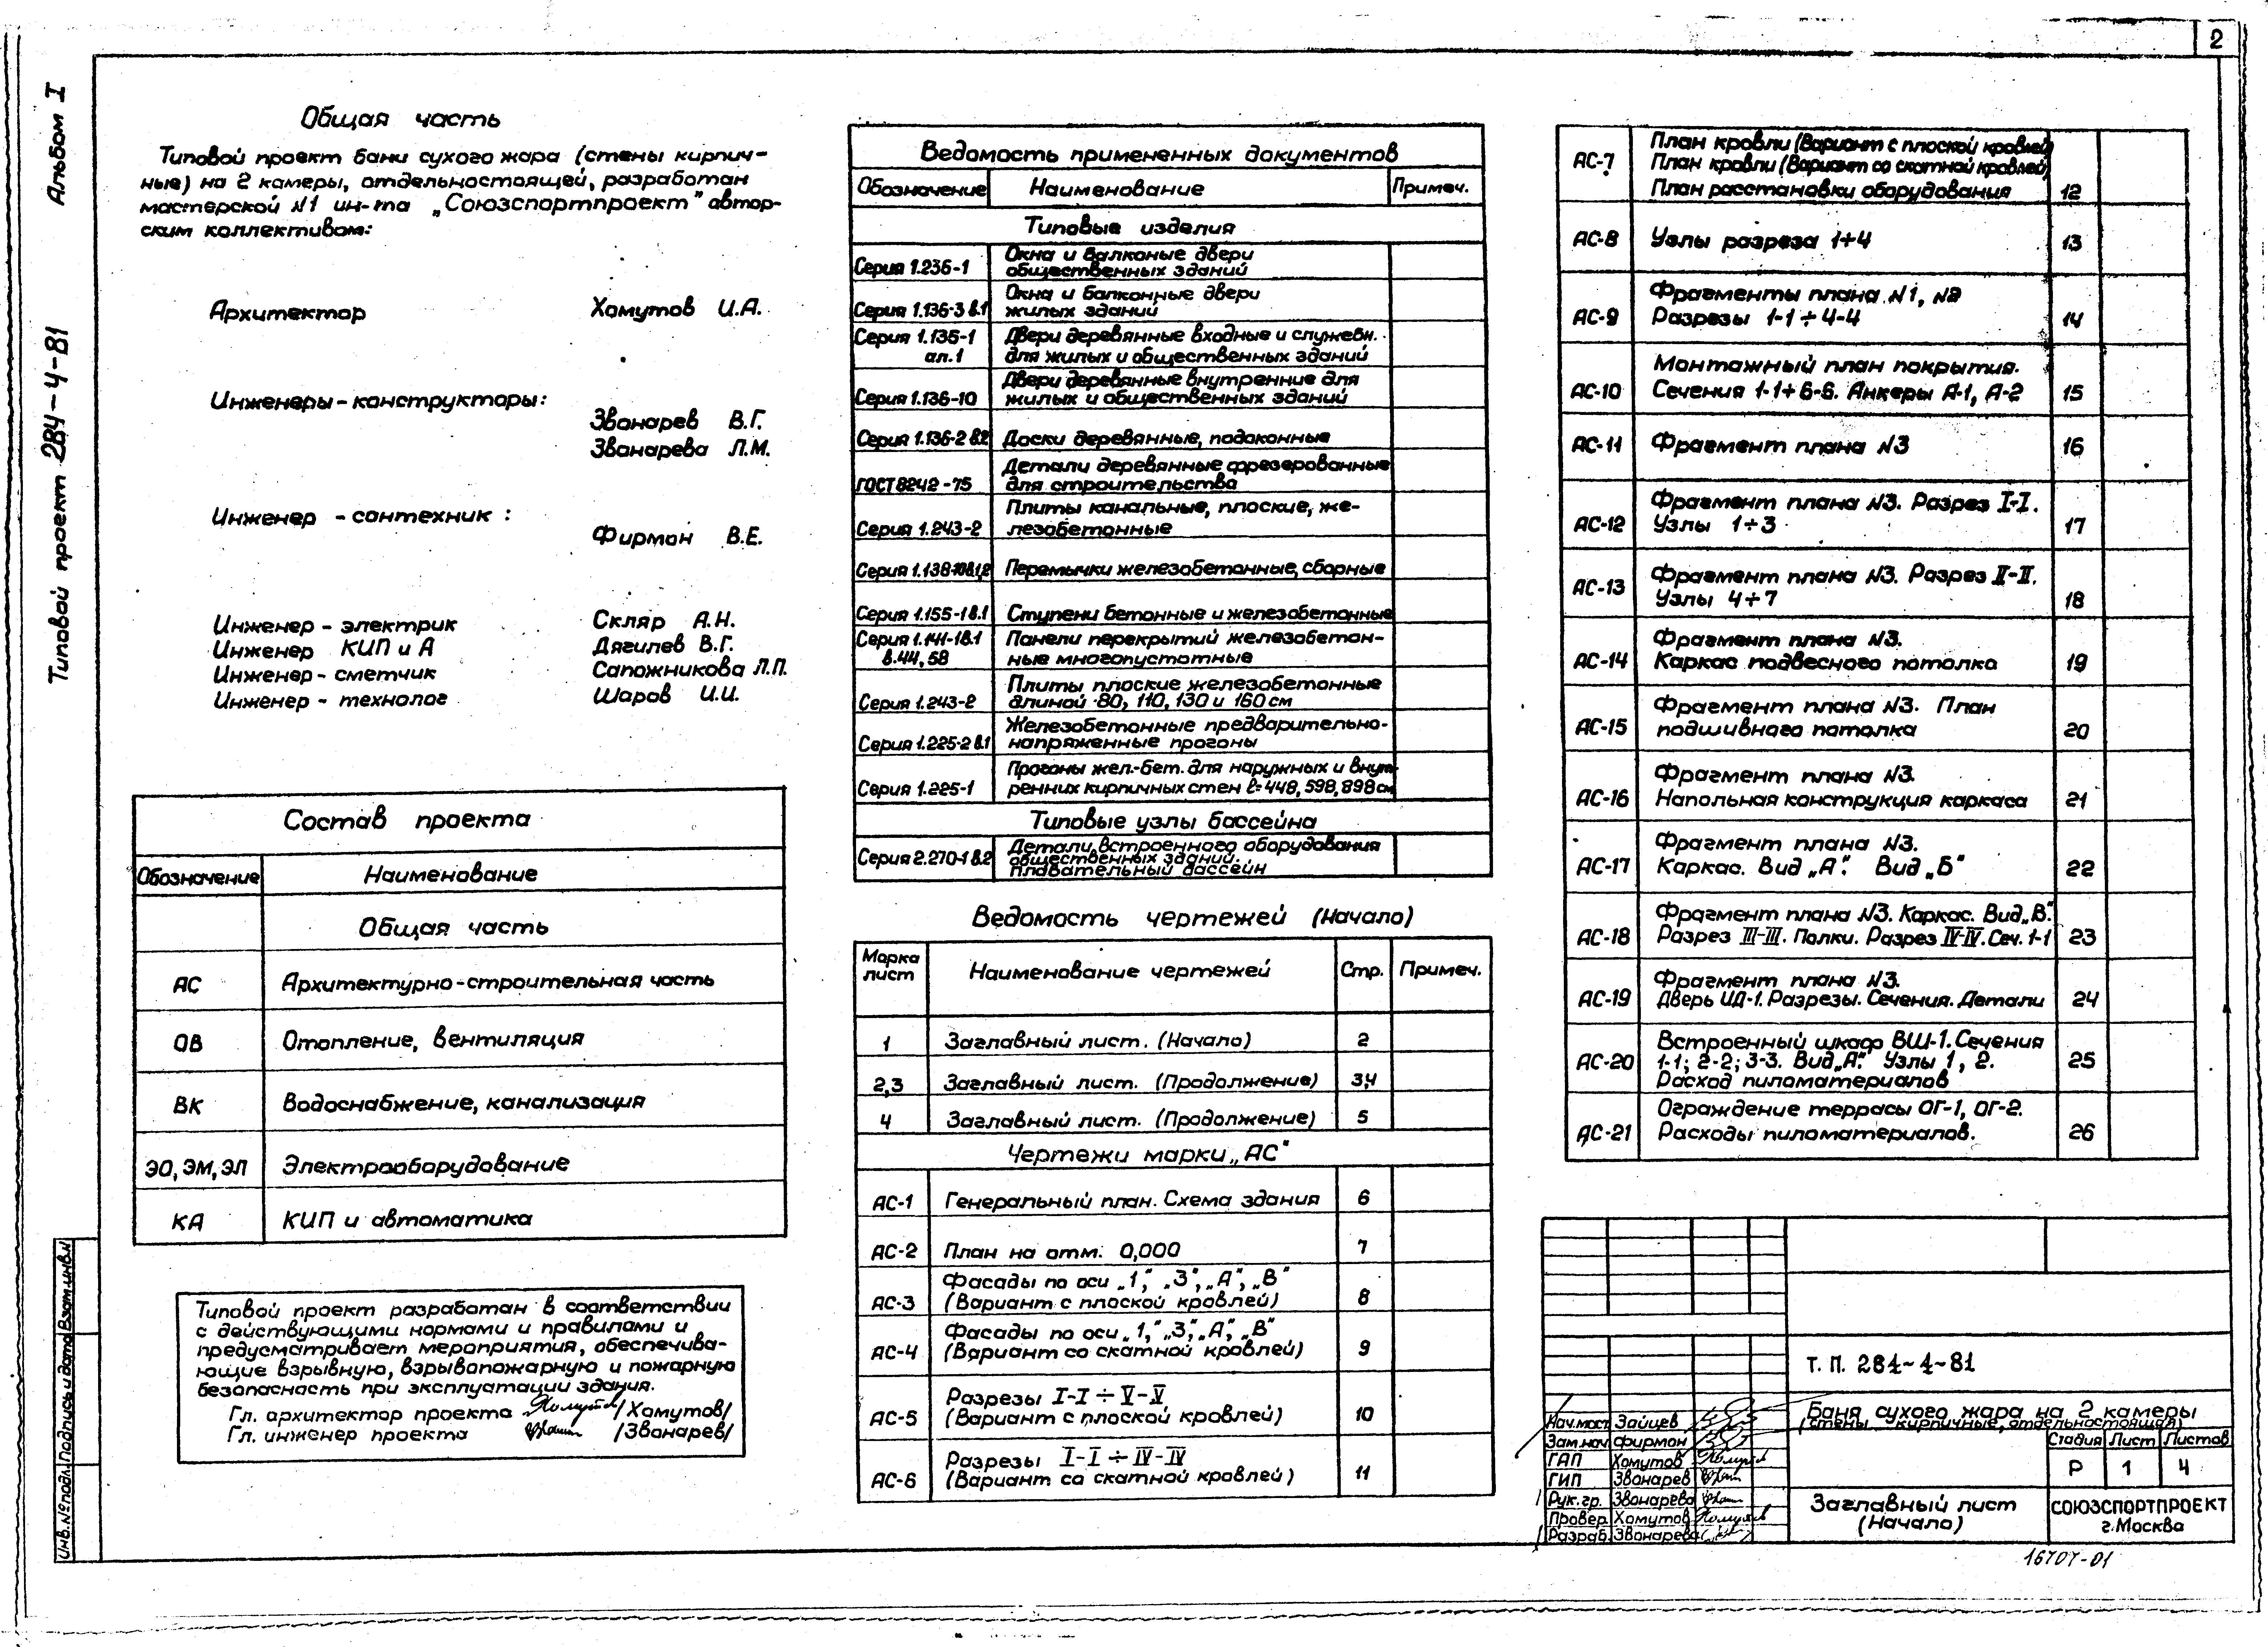 2
Альбом I
Типовой проект 284-4-81
Общая часть
Типовой проект бани сухого жара (стены кирпич-
ные) на 2 камеры, отдельностоящей, разработан
мастерской N1 ин-та „Союзспортпроект" автор-
ским коллективом:
Архитектор Хомутов И.А.
Инженеры-конструкторы:
Звонарев В.Г.
Звонарева Л.М.
Инженер - сантехник :
Фирман В.Е.
Инженер - электрик Скляр А.Н.
Инженер КИП и А Дягилев В.Г.
Инженер-сметчик Сапожникова Л.П.
Инженер - технолог Шаров И.И.
Состав проекта
Обозначение Наименование
Общая часть
АС Архитектурно-строительная часть
ОВ Отопление, вентиляция
ВК Водоснабжение, канализация
ЭО, ЭМ, ЭЛ Электрооборудование
КА КИП и автоматика
Типовой проект разработан в соответствии
с действующими нормами и правилами и
предусматривает мероприятия, обеспечива-
ющие взрывную, взрывопожарную и пожарную
безопасность при эксплуатации здания.
Гл. архитектор проекта /Хомутов/
Гл. инженер проекта /Звонарев/
Инв.№подл. Подпись и дата Взам.инв.N
Ведомость примененных документов
Обозначение Наименование Примеч.
Типовые изделия
Серия 1.236-1 Окна и балконые двери
общественных зданий
Серия 1.136-3 в.1 Окна и балконные двери
жилых зданий
Серия 1.135-1 Двери деревянные входные и служебн.
ал.1 для жилых и общественных зданий
Серия 1.136-10 Двери деревянные внутренние для
жилых и общественных зданий
Серия 1.136-2 в.2 Доски деревянные, подоконные
ГОСТ 8242-75 Детали деревянные фрезерованные
для строительства
Серия 1.243-2 Плиты канальные, плоские, же-
лезобетонные
Серия 1.138-10в.1,2 Перемычки железобетонные, сборные
Серия 1.155-1 в.1 Ступени бетонные и железобетонные
Серия 1.141-1в.1 Панели перекрытий железобетон-
в.44,58 ные многопустотные
Серия 1.243-2 Плиты плоские железобетонные
длиной 80, 110, 130 и 160 см
Серия 1.225-2 в.1 Железобетонные предварительно-
напряженные прогоны
Серия 1.225-1 Прогоны жел.-бет. для наружных и внут-
ренних кирпичных стен ℓ=448, 598, 898 см
Типовые узлы бассейна
Серия 2.270-1 в.2 Детали встроенного оборудования
общественных зданий.
Плавательный бассейн
Ведомость чертежей (Начало)
Марка
лист Наименование чертежей Стр. Примеч.
1 Заглавный лист. (Начало) 2
2,3 Заглавный лист. (Продолжение) 3,4
4 Заглавный лист. (Продолжение) 5
Чертежи марки „АС"
АС-1 Генеральный план. Схема здания 6
АС-2 План на отм. 0,000 7
АС-3 Фасады по оси „1," „3", „А", „В"
(Вариант с плоской кровлей) 8
АС-4 Фасады по оси „1," „3", „А", „В"
(Вариант со скатной кровлей) 9
АС-5 Разрезы I-I ÷ V-V
(Вариант с плоской кровлей) 10
АС-6 Разрезы I-I ÷ IV-IV
(Вариант со скатной кровлей) 11
АС-7 План кровли (Вариант с плоской кровлей)
План кровли (Вариант со скатной кровлей)
План расстановки оборудования 12
АС-8 Узлы разреза 1÷4 13
АС-9 Фрагменты плана N1, N2
Разрезы 1-1 ÷ 4-4 14
АС-10 Монтажный план покрытия.
Сечения 1-1÷6-6. Анкеры А-1, А-2 15
АС-11 Фрагмент плана N3 16
АС-12 Фрагмент плана N3. Разрез I-I.
Узлы 1÷3 17
АС-13 Фрагмент плана N3. Разрез II-II.
Узлы 4÷7 18
АС-14 Фрагмент плана N3.
Каркас подвесного потолка 19
АС-15 Фрагмент плана N3. План
подшивного потолка 20
АС-16 Фрагмент плана N3.
Напольная конструкция каркаса 21
АС-17 Фрагмент плана N3.
Каркас. Вид „А". Вид „Б" 22
АС-18 Фрагмент плана N3. Каркас. Вид „В".
Разрез III-III. Полки. Разрез IV-IV. Сеч. 1-1 23
АС-19 Фрагмент плана N3.
Дверь ИД-1. Разрезы. Сечения. Детали 24
АС-20 Встроенный шкаф ВШ-1. Сечения
1-1; 2-2; 3-3. Вид „А". Узлы 1, 2.
Расход пиломатериалов 25
АС-21 Ограждение террасы ОГ-1, ОГ-2.
Расходы пиломатериалов. 26
Т. П. 284-4-81
Баня сухого жара на 2 камеры
(стены кирпичные, отдельностоящая)
Нач.маст. Зайцев
Зам.нач. Фирман
ГАП Хомутов
ГИП Звонарев
Рук.гр. Звонарева
Провер. Хомутов
Разраб. Звонарева
Стадия Лист Листов
Р 1 4
Заглавный лист
(Начало)
СОЮЗСПОРТПРОЕКТ
г.Москва
16707-01